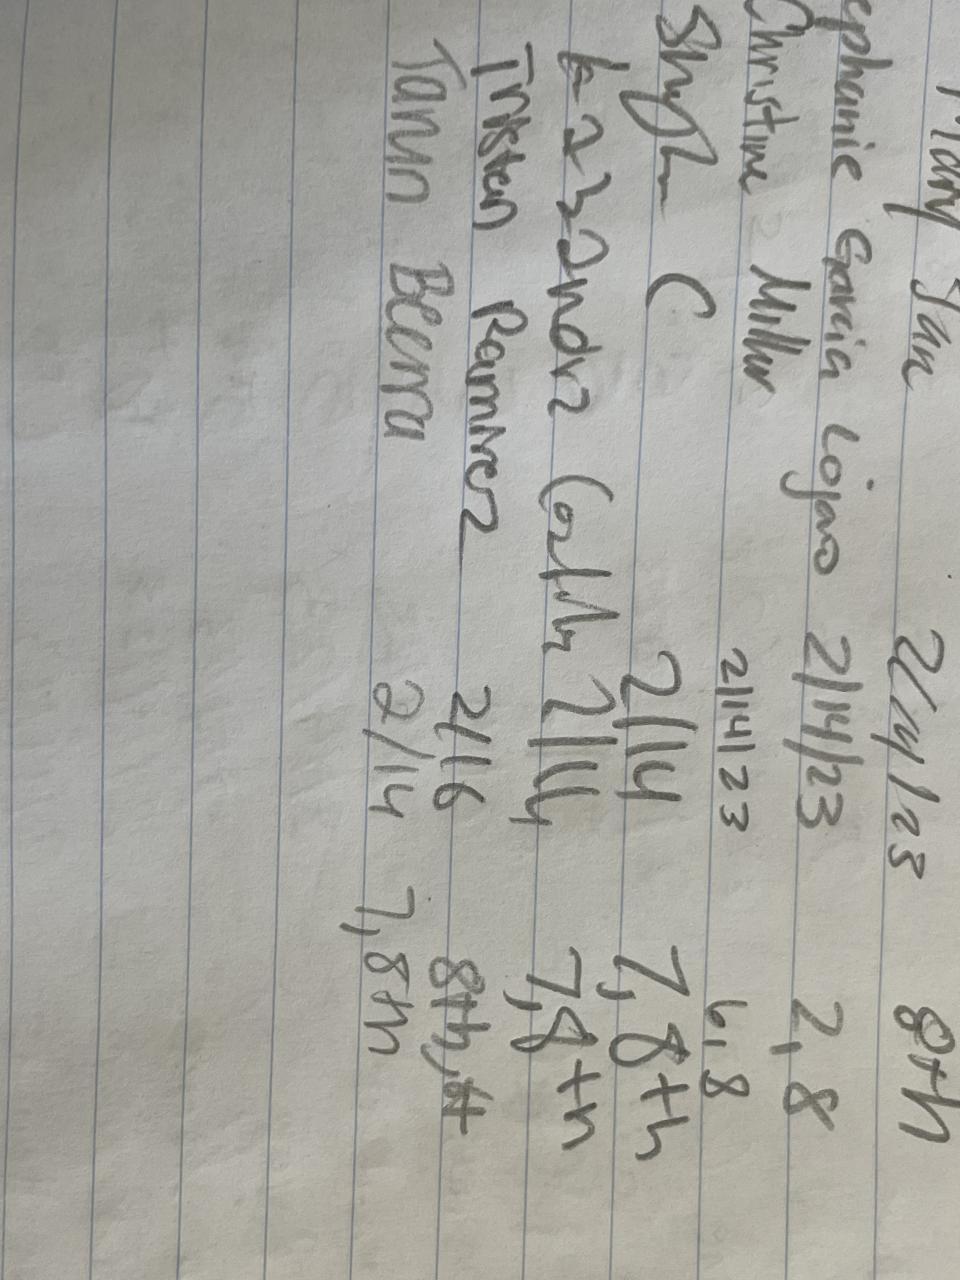 Mary Jan 2/14/23 8th
ephanie Garcia Lojano 2/14/23 2,8
Christine Miller 2/14/23 6,8
C 2/14 7,8th
2/14 7,8th
Tristen Ramirez 2/16 8th,
Tann Becerra 2/14 7,8th